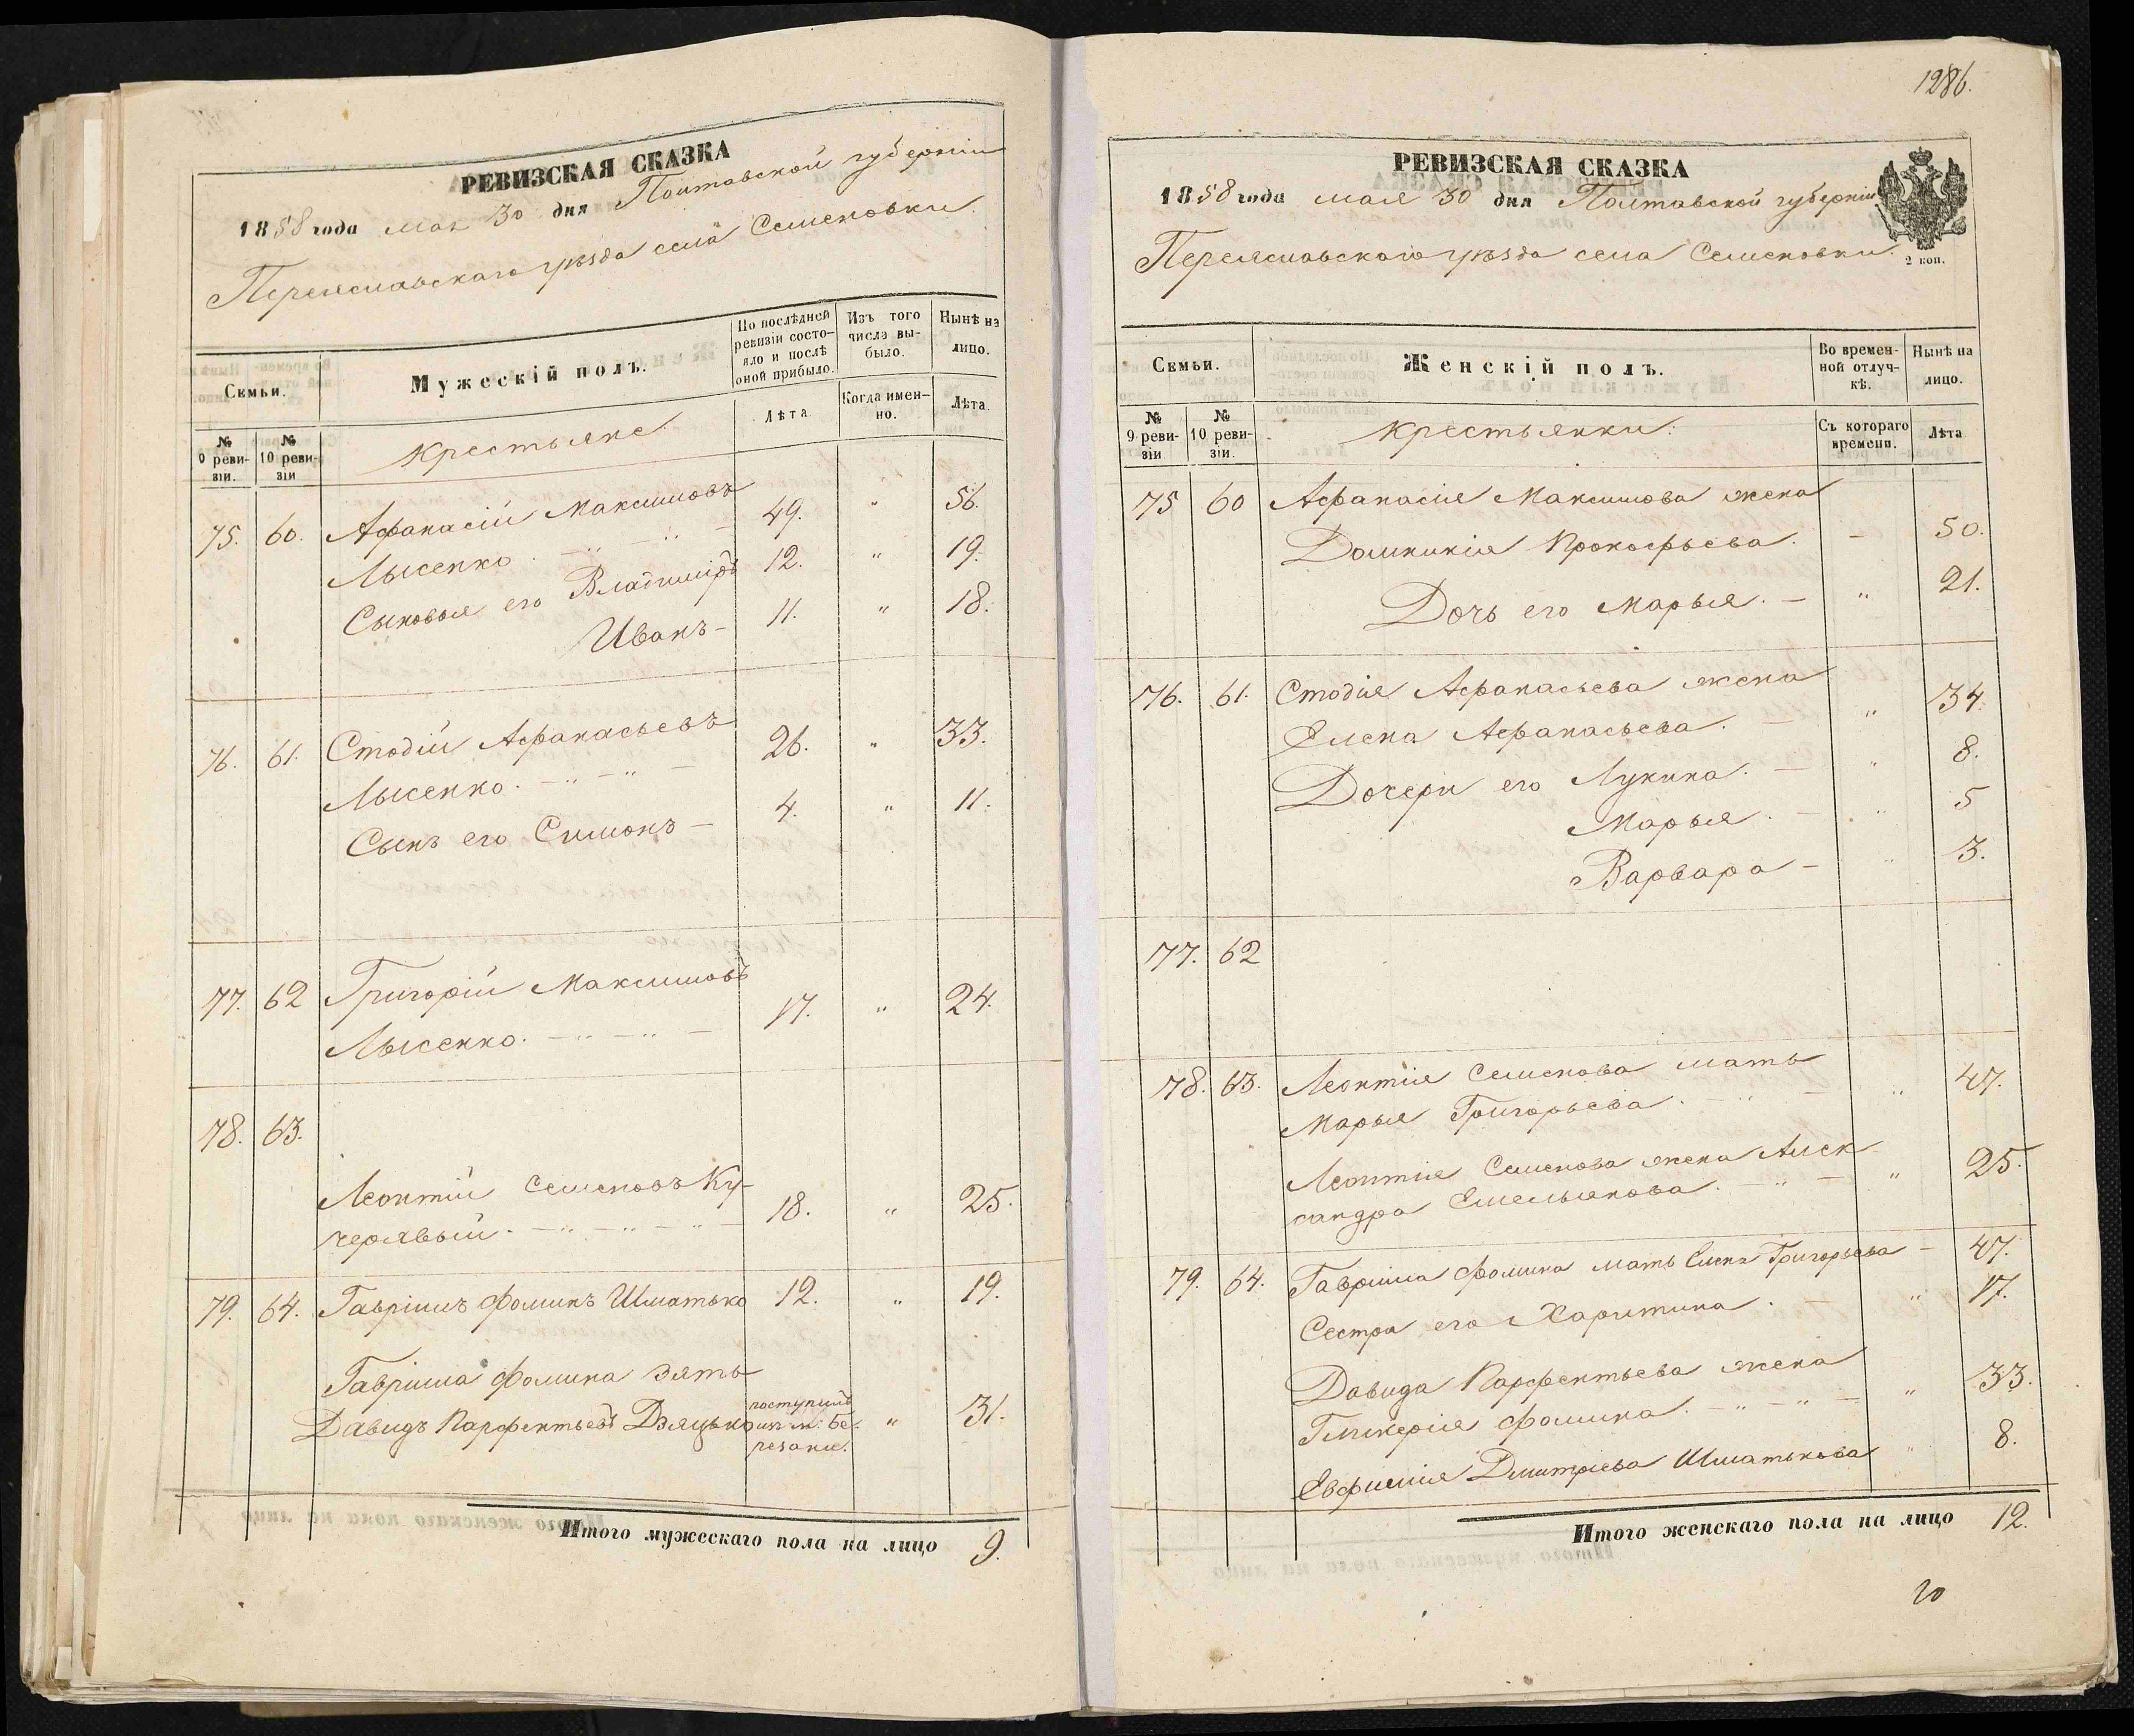 РЕВИЗСКАЯ СКАЗКА
1858 года мая 30 дня Полтавской губерніи
Переяславскаго уѣзда села Семеновки.
Семьи.
Мужескій полъ.
По послѣдней ревизіи состояло и послѣ оной прибыло.
Изъ того числа выбыло.
Нынѣ на лицо.
№ 9 ревизіи.
№ 10 ревизіи
крестьяне:
Лѣта
Когда именно.
Лѣта.
75. 60. Афанасій Максимовъ
Лысенко. 49. " 56.
Сыновья его Владиміръ 12. " 19.
Иванъ – 11. " 18.
76. 61. Стодій Афанасьевъ
Лысенко. – " – " – 26. " 33.
Сынъ его Симонъ – 4. " 11.
77. 62 Григорій Максимовъ
Лысенко. – " – " – 17. " 24.
78. 63.
Леонтій Семеновъ Ку-
черявый. – " – " – " – 18. " 25.
79. 64. Гавріилъ Фоминъ Шматько 12. " 19.
Гавріила Фомина зять
Давидъ Парфентьевъ Дзяцько поступилъ изъ м. Березани. " 31.
Итого мужескаго пола на лицо 9.
1286.
РЕВИЗСКАЯ СКАЗКА
1858 года мая 30 дня Полтавской губерніи
Переяславскаго уѣзда села Семеновки.
2 коп.
Семьи.
Женскій полъ.
Во временной отлучкѣ.
Нынѣ на лицо.
№ 9 ревизіи
№ 10 ревизіи.
крестьянки:
Съ котораго времени.
Лѣта
75 60 Афанасія Максимова жена
Домникія Прокофьева. – 50.
Дочь его Марья. – " 21.
76. 61. Стодія Афанасьева жена
Елена Афанасьева. – " 34.
Дочери его Лукина. – " 8.
Марья. – " 5
Варвара – " 3.
77. 62
78. 63. Леонтія Семенова мать
Марья Григорьева. – " – " 47.
Леонтія Семенова жена Алек-
сандра Емельянова. – " – " 25.
79. 64. Гавріила Фомина мать Елена Григорьева – 47.
Сестра его Харитина. – " 17.
Давида Парфентьева жена
Гликерія Фомина. – " – " – " 33.
Евфимія Дмитріева Шматькова " 8.
Итого женскаго пола на лицо 12.